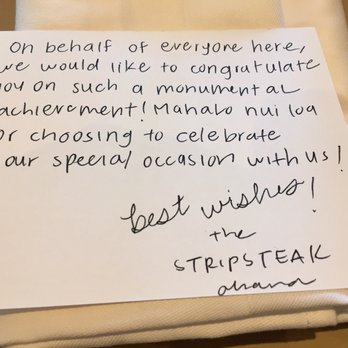 On behalf of everyone here,
we would like to congratulate
you on such a monumental
achievement! Mahalo nui loa
for choosing to celebrate
your special occasion with us!
best wishes!
the
STRIPSTEAK
ohana